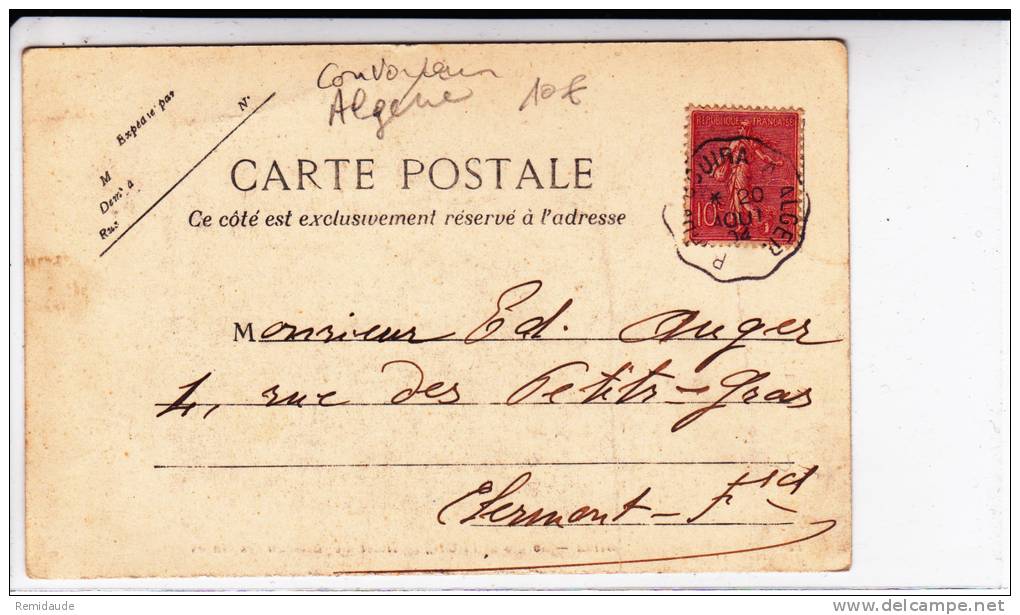 Convoyeur
Algerie 10€
Expédié par
N°
M
Dem^t à
Rue
CARTE POSTALE
Ce côté est exclusivement réservé à l'adresse
RÉPUBLIQUE FRANÇAISE
10
BOUIRA A ALGER
* 20
AOUT
04
Monsieur Ed. Auger
4, rue des Petits-Gras
Clermont-Fd
Remidaude
delcampe.net